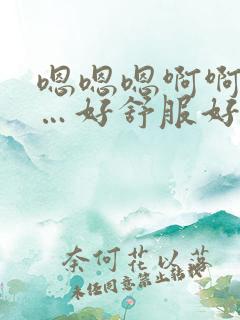 嗯嗯嗯啊啊
…好舒服好
奈何花以落
未经同意禁止转载